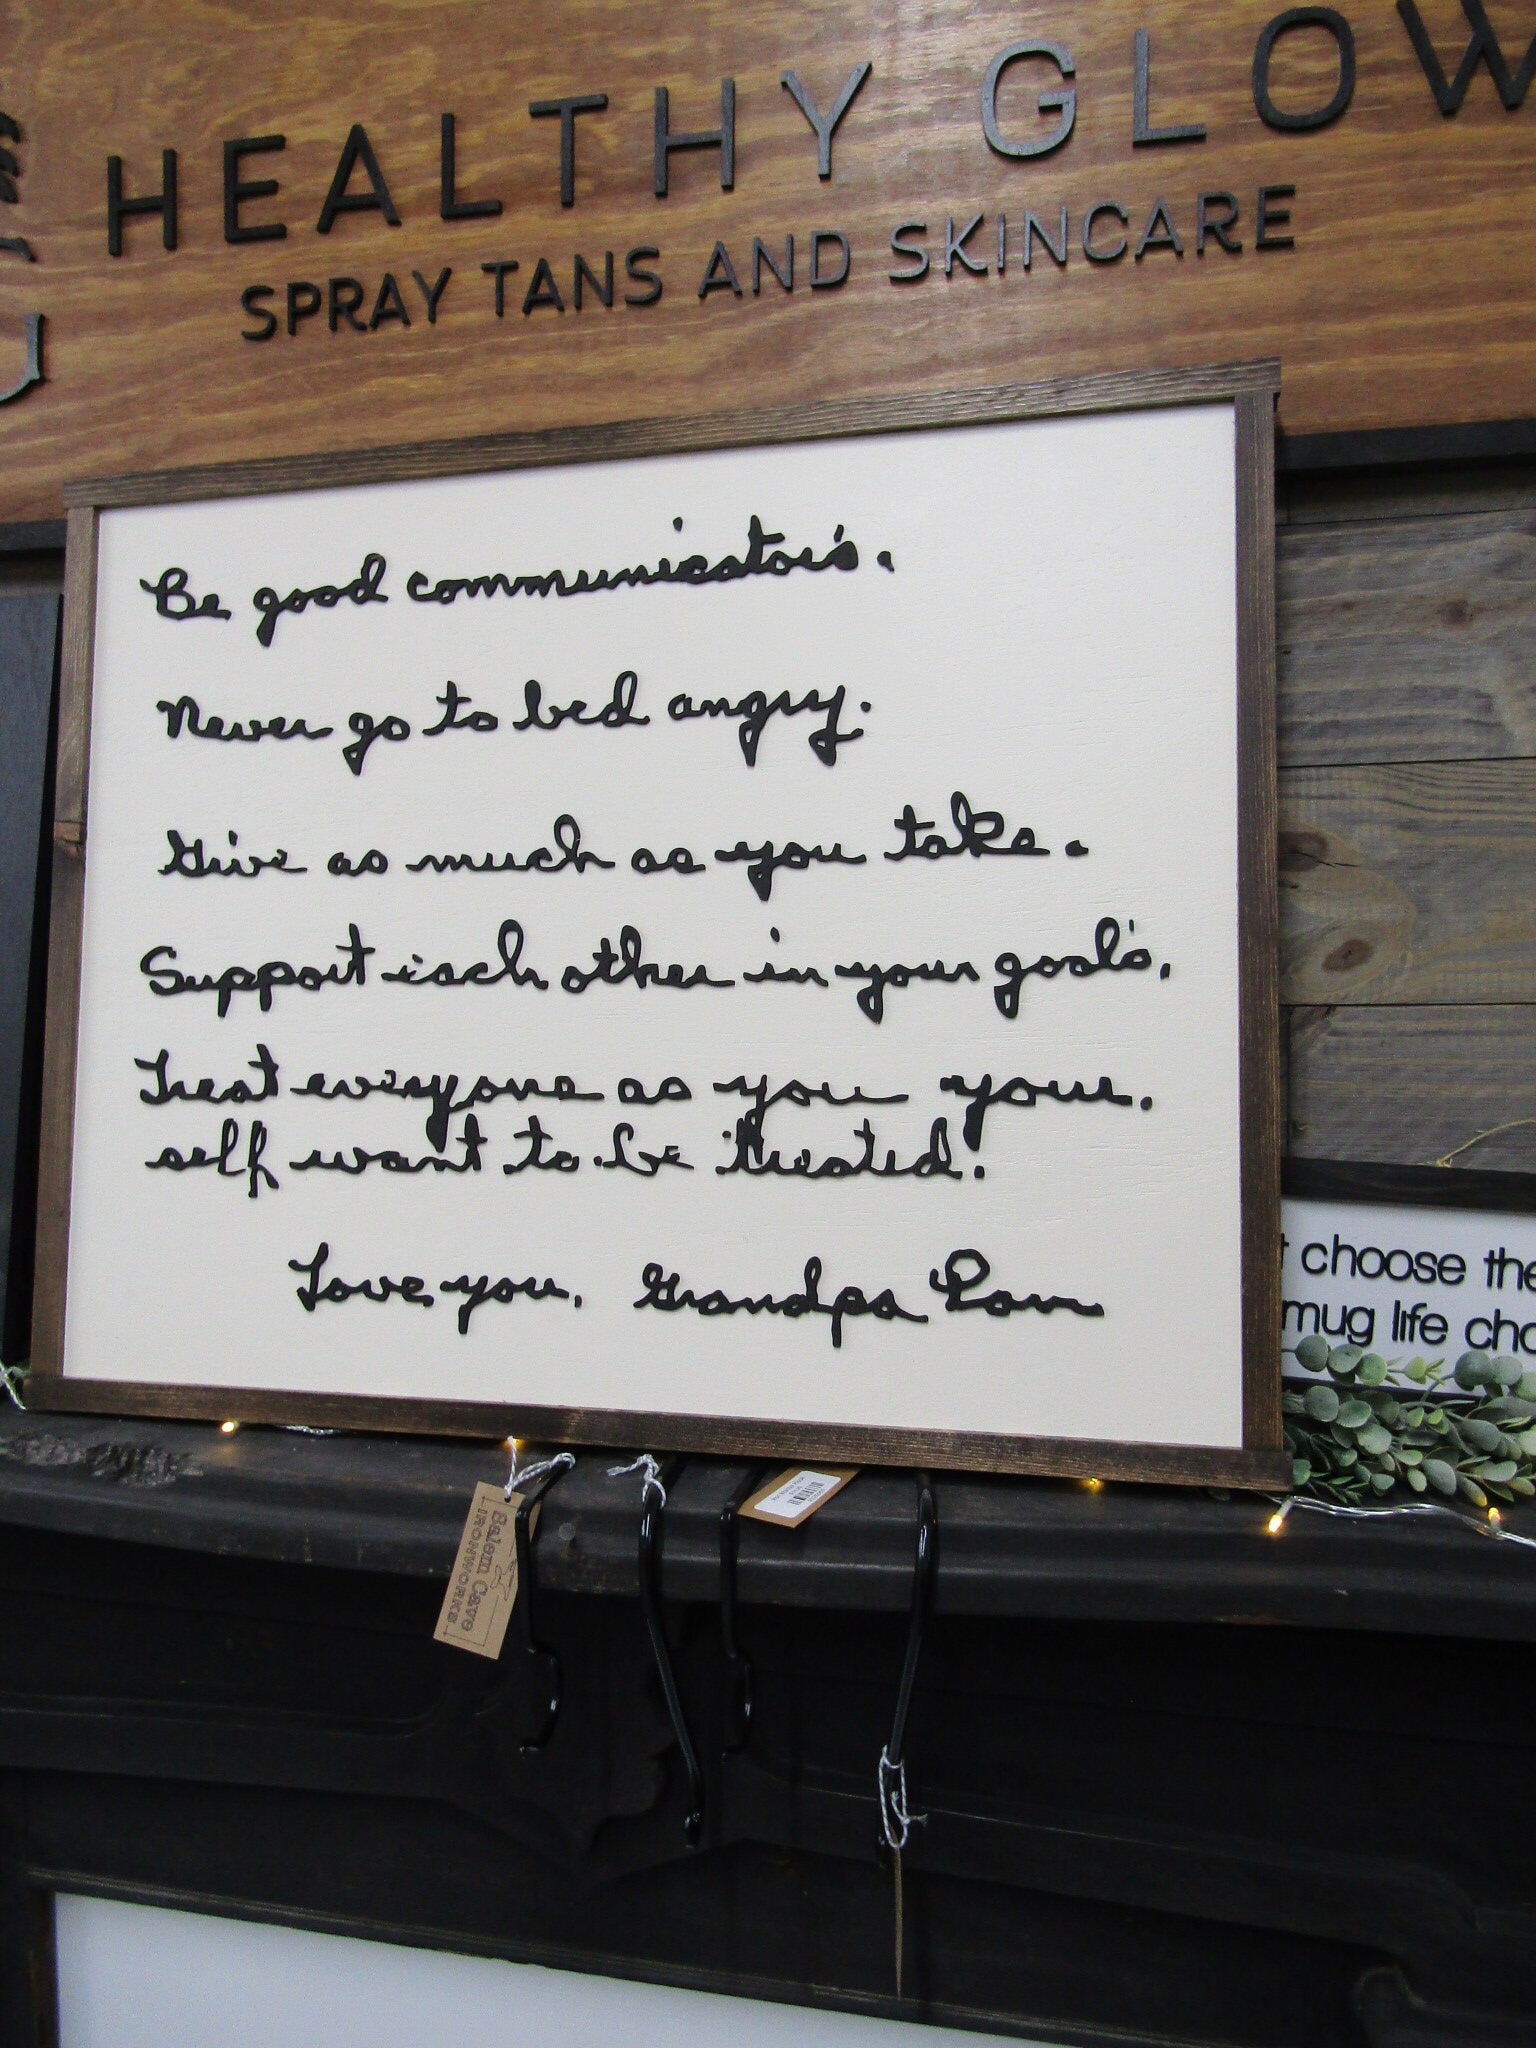 HEALTHY GLOW
SPRAY TANS AND SKINCARE
Be good communicator's.
Never go to bed angry.
Give as much as you take.
Support each other in your goal's.
Treat everyone as you your.
self want to be treated.
Love you, Grandpa
choose the
mug life
Salem Cave
IRONWORKS